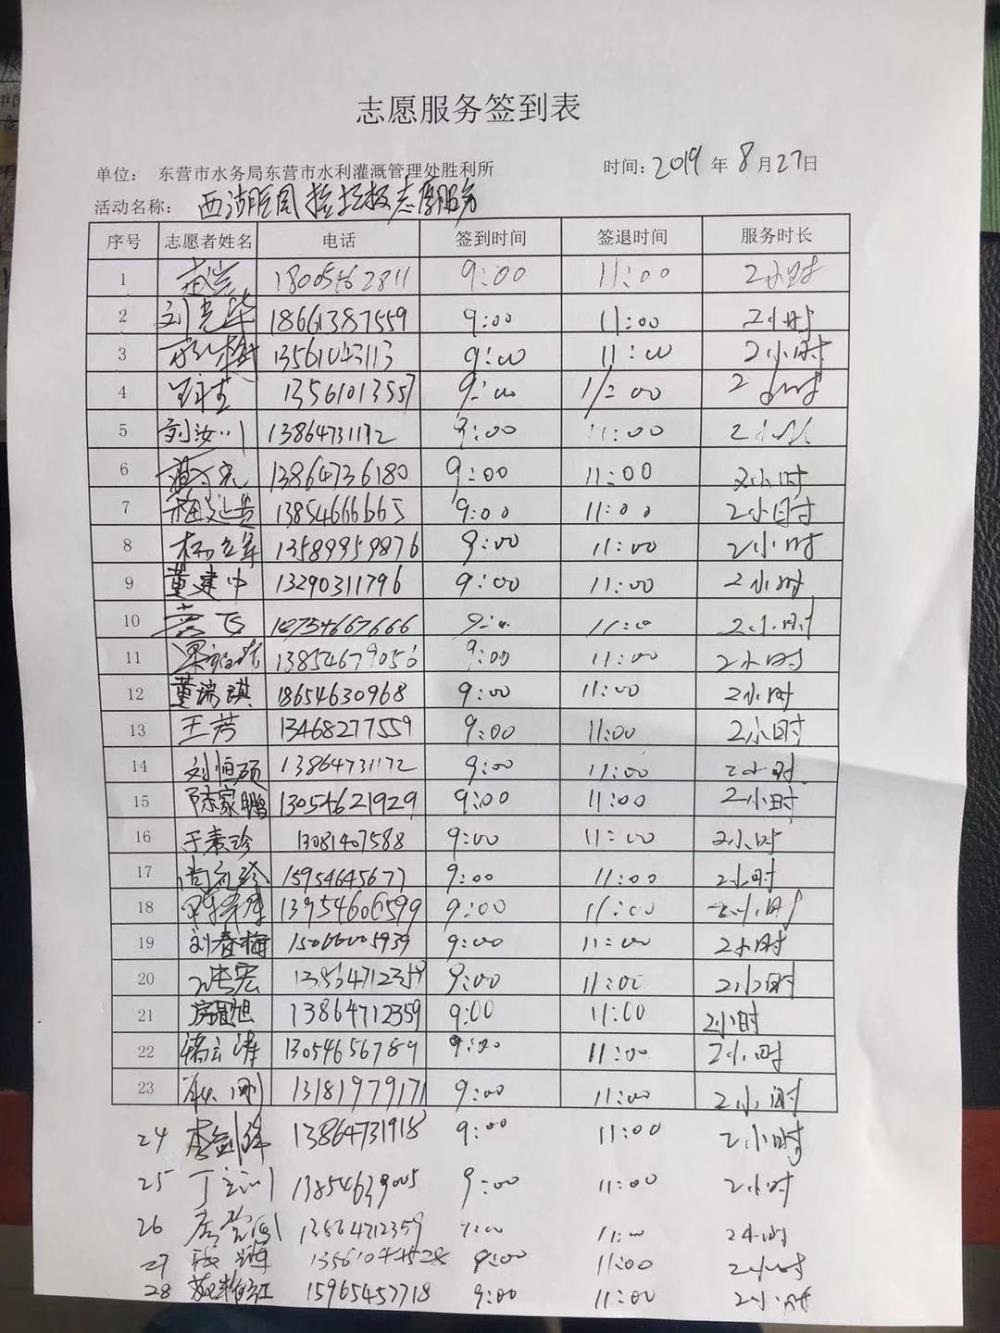 志愿服务签到表
单位： 东营市水务局东营市水利灌溉管理处胜利所 时间：2019年8月27日
活动名称： 西湖 志愿服务
序号 志愿者姓名 电话 签到时间 签退时间 服务时长
1 18005462811 9:00 11:00 2小时
2 刘光华 18661387559 9:00 11:00 2小时
3 13561043113 9:00 11:00 2小时
4 13561013557 9:00 11:00 2小时
5 刘汝川 13864731172 9:00 11:00 2小时
6 13864736180 9:00 11:00 2小时
7 13854666665 9:00 11:00 2小时
8 杨立军 13589959876 9:00 11:00 2小时
9 董建中 13290311796 9:00 11:00 2小时
10 9:00 11:00 2小时
11 13854679056 9:00 11:00 2小时
12 董瑞琪 18654630968 9:00 11:00 2小时
13 王芳 13468277559 9:00 11:00 2小时
14 刘恒硕 13864731172 9:00 11:00 2小时
15 陈家鹏 13054621929 9:00 11:00 2小时
16 于素珍 13081407588 9:00 11:00 2小时
17 15954645677 9:00 11:00 2小时
18 13954606599 9:00 11:00 2小时
19 刘春梅 15066005939 9:00 11:00 2小时
20 9:00 11:00 2小时
21 13864712359 9:00 11:00 2小时
22 13054656789 9:00 11:00 2小时
23 13181979171 9:00 11:00 2小时
24 李剑锋 13864731918 9:00 11:00 2小时
25 13854639005 9:00 11:00 2小时
26 13864712359 9:00 11:00 2小时
27 9:00 11:00 2小时
28 15965457718 9:00 11:00 2小时